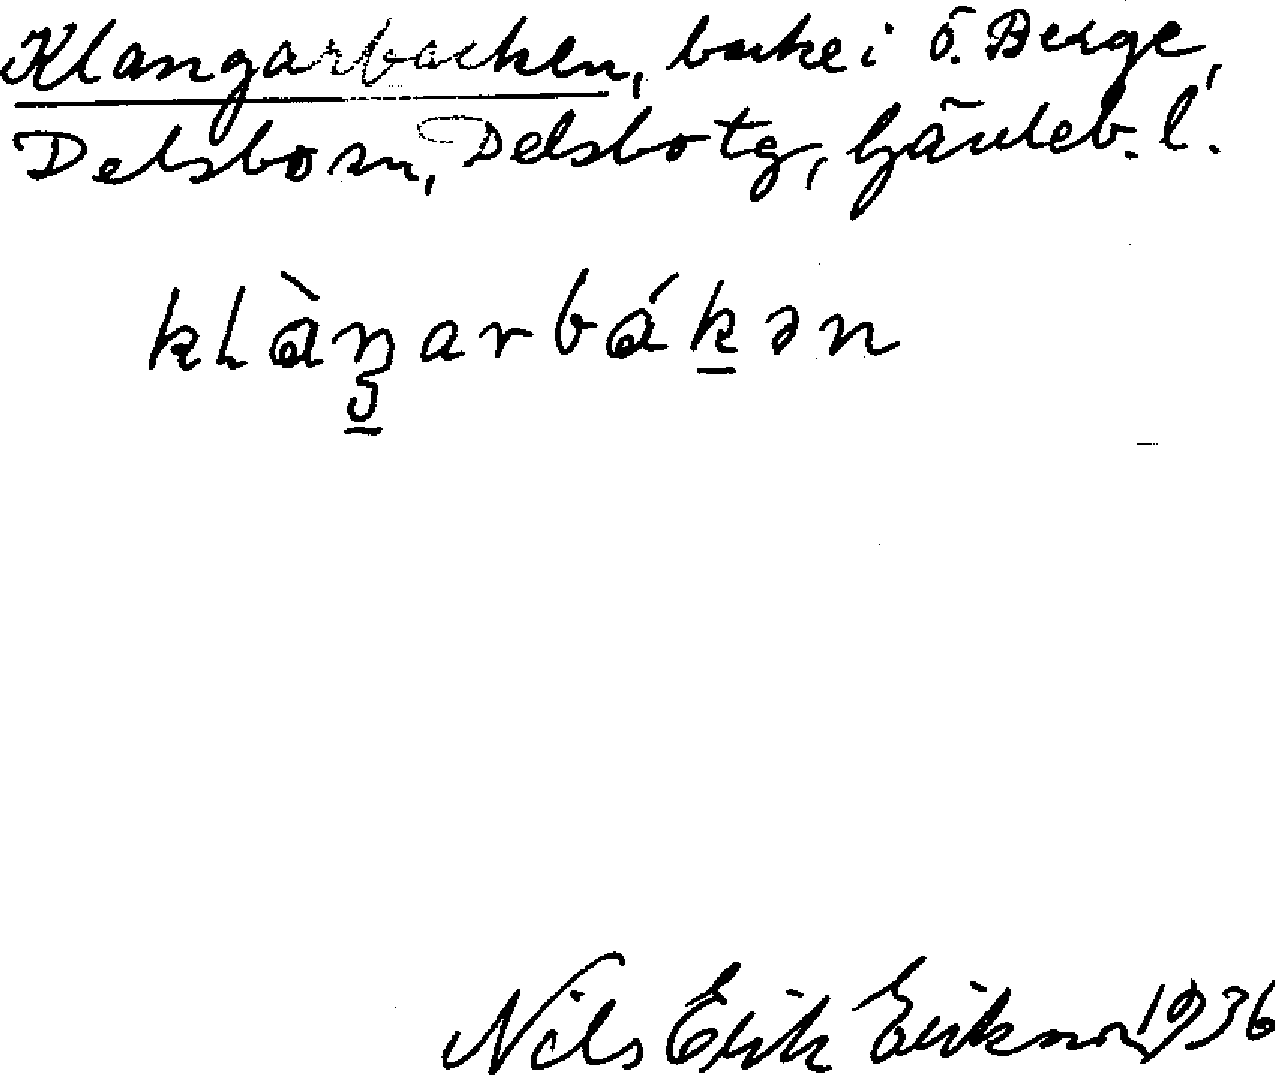 Klangarbacken, backe i Ö. Berge,
Delsbo sn, Delsbo tg, Gävleb. l.
klàŋarbákən
Nils Erik Eriksson 1936